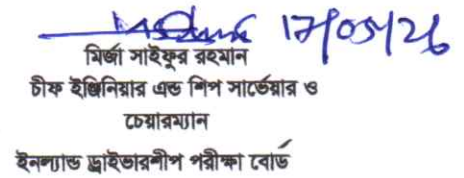 মির্জা সাইফুর রহমান
চীফ ইঞ্জিনিয়ার এন্ড শিপ সার্ভেয়ার ও
চেয়ারম্যান
ইনল্যান্ড ড্রাইভারশীপ পরীক্ষা বোর্ড